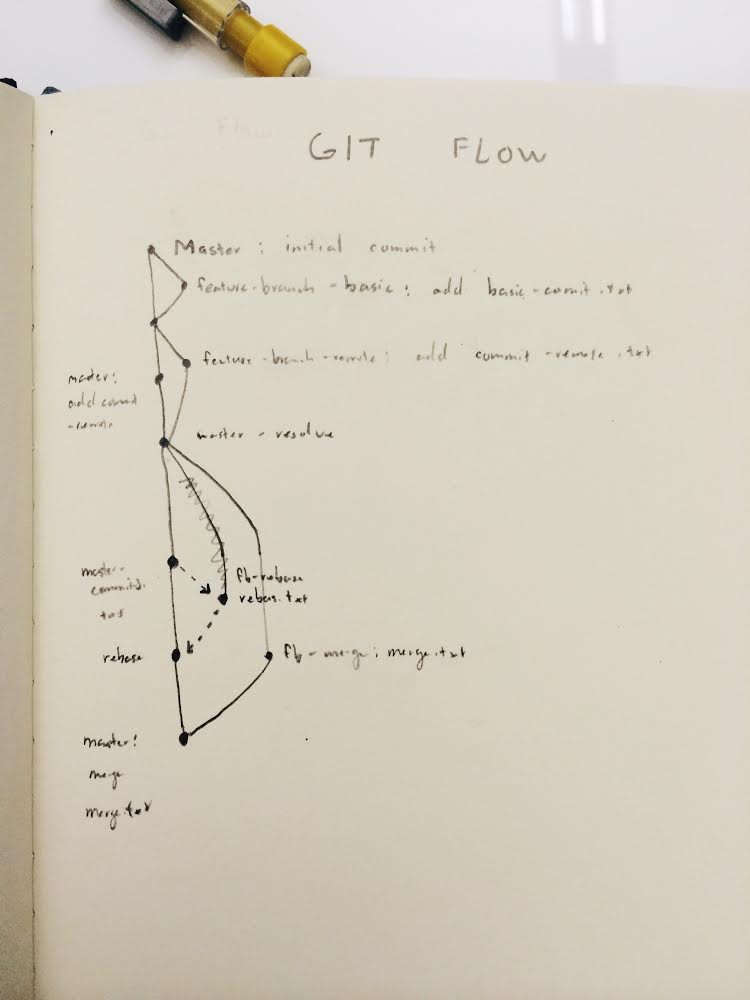 GIT FLOW
Master : initial commit
feature-branch-basic : add basic-commit.txt
feature-branch-remote : add commit-remote.txt
master :
add commit
-remote
master - resolve
master -
fb-rebase
rebase.txt
txt
rebase
fb-merge : merge.txt
master :
merge
merge.txt